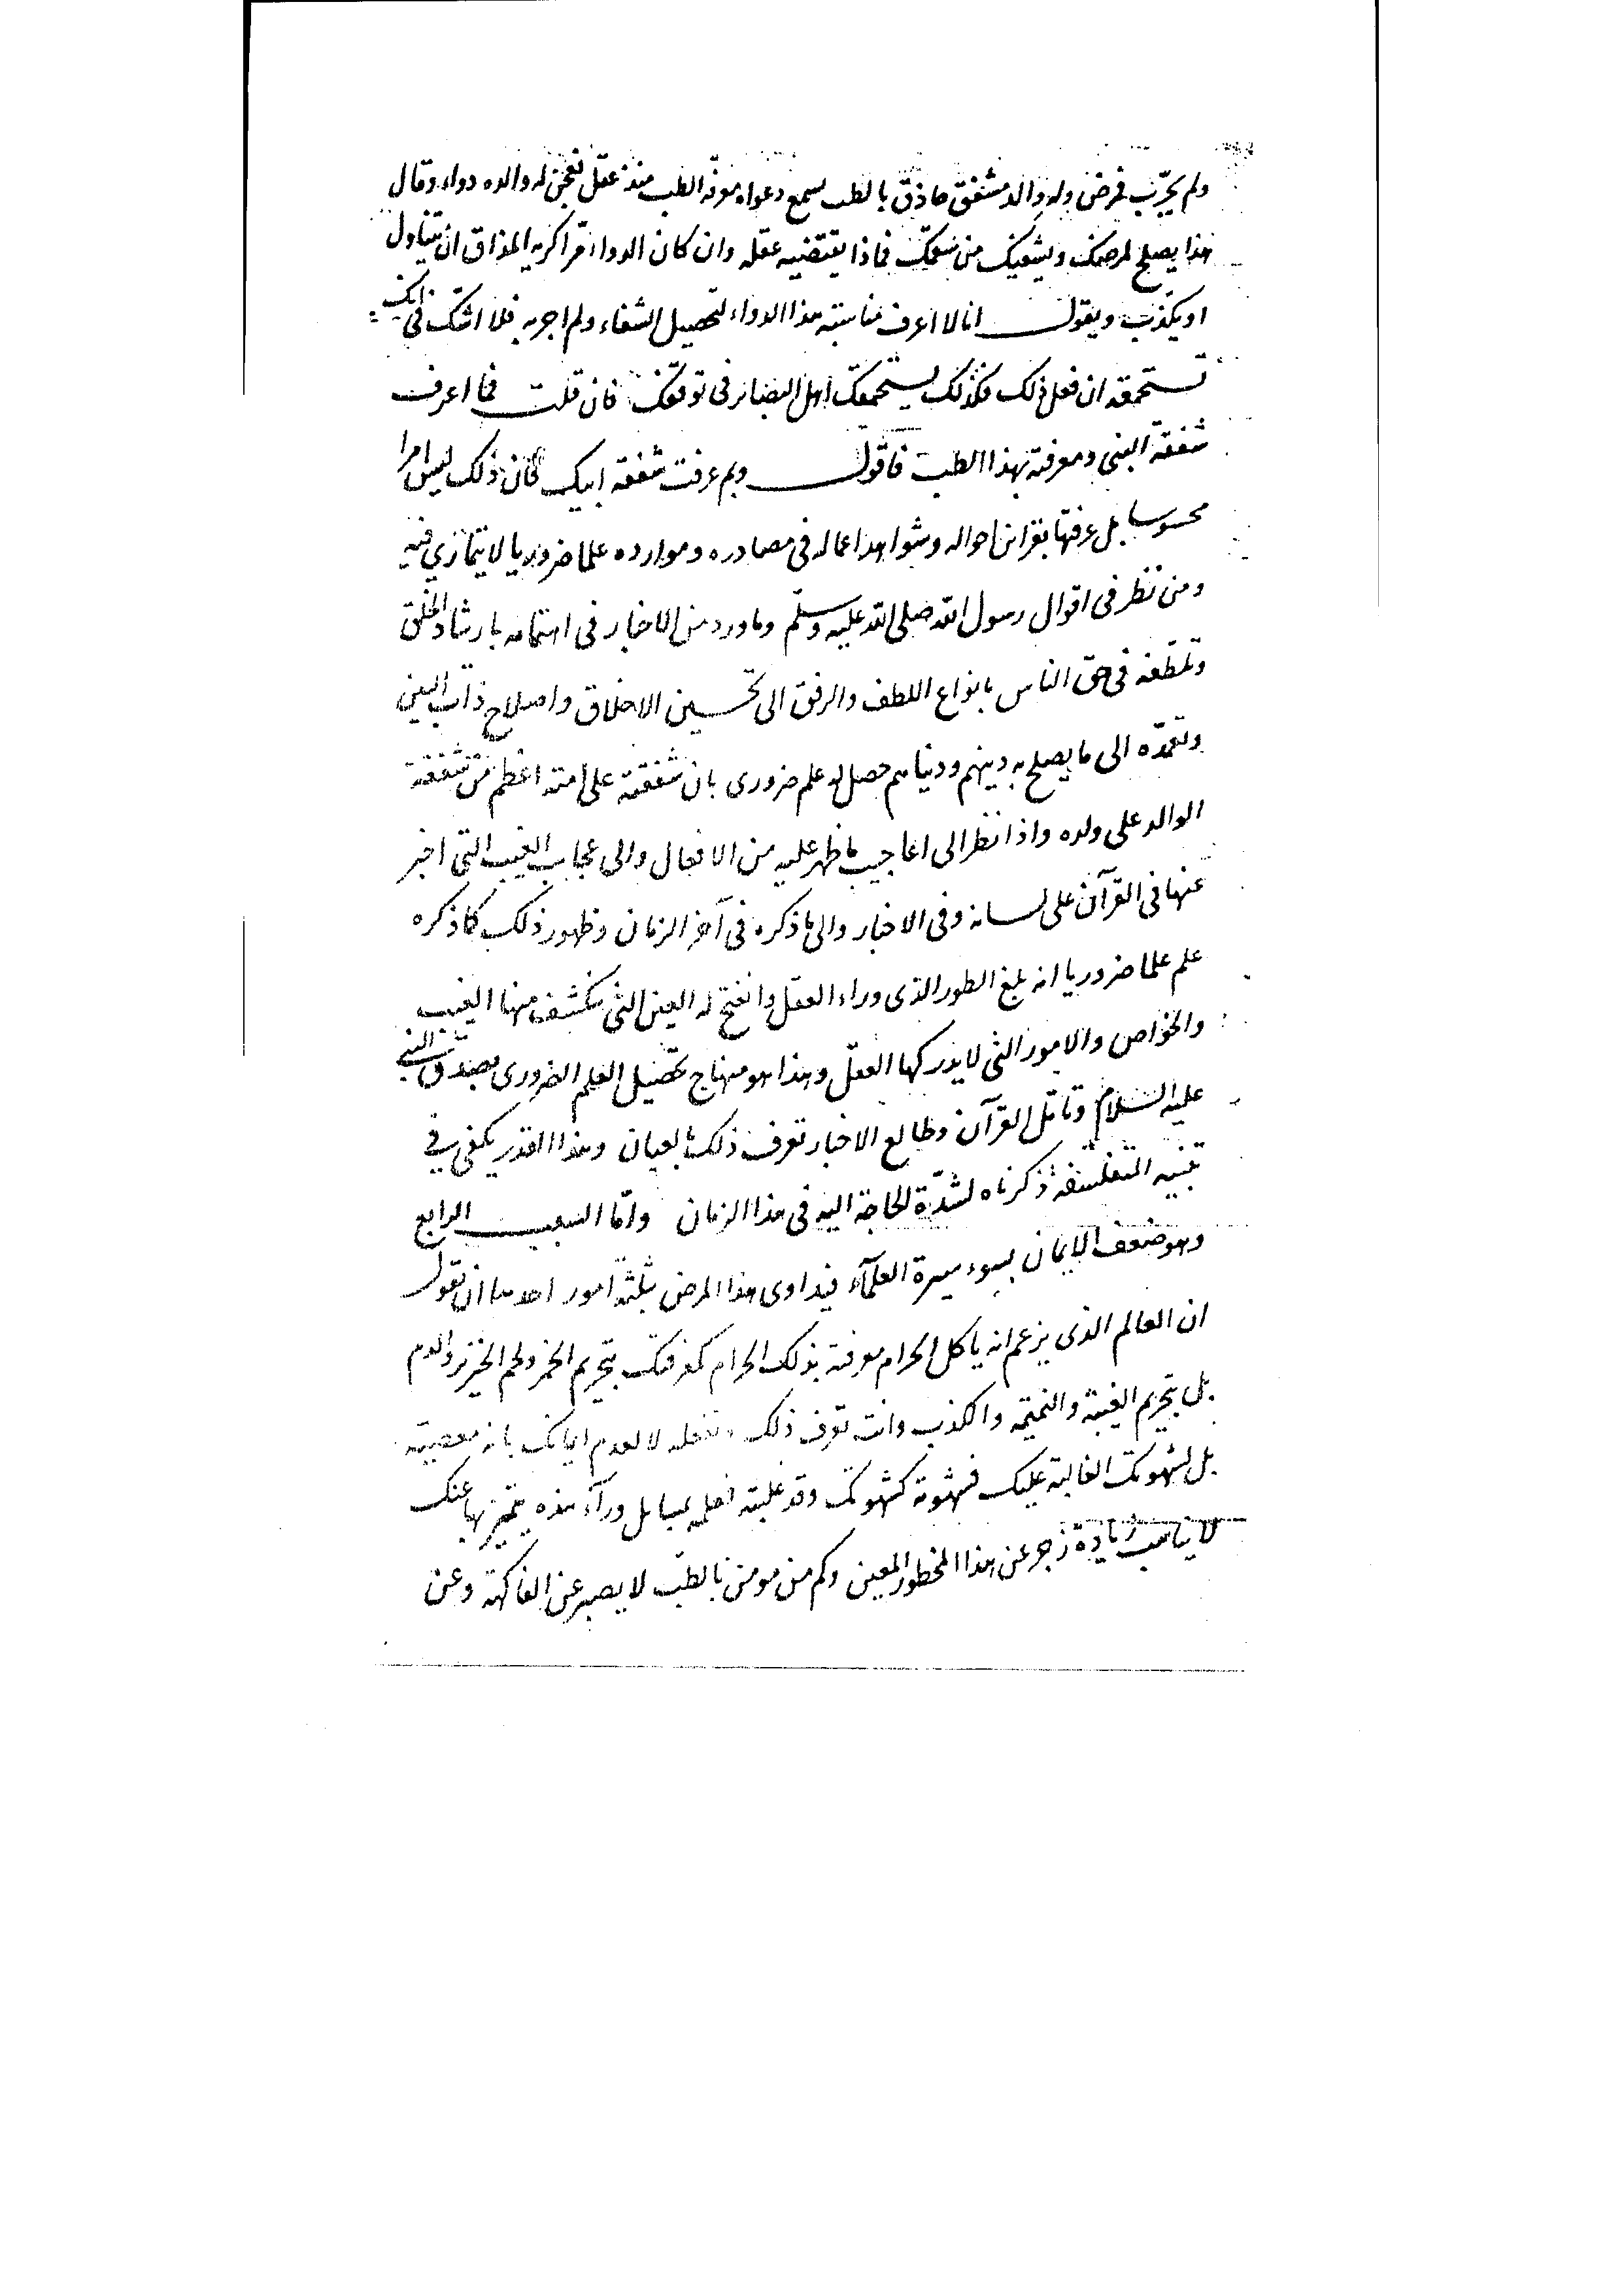 ولم يجرّب فمرض وله والد مشفق حاذق بالطب يسمع دعواه معرفة الطب منذ عقل فعجن له والده دواء وقال
هذا يصلح لمرضك ويشفيك من سقمك فماذا يقتضيه عقله وان كان الدواء مرّا كريه المذاق ان يتناول
او يكذب ويقول انا لا اعرف مناسبة هذا الدواء لتحصيل الشفاء ولم اجربه فلا اشك في انك
تستحمقه ان فعل ذلك فكذلك يستحمقك اهل البصائر في توقفك فان قلت فما اعرف
شفقة النبي ومعرفته بهذا الطب فاقول وبم عرفت شفقة ابيك فان ذلك ليس امرا
محسوسا بل عرفتها بقرائن احواله وشواهد اعماله في مصادره وموارده علما ضروريا لا يتمارى فيه
ومن نظر في اقوال رسول الله صلى الله عليه وسلم وما ورد من الاخبار في اهتمامه بارشاد الخلق
وتلطفه في حق الناس بانواع اللطف والرفق الى تحسين الاخلاق واصلاح ذات البين
الى ما يصلح به دينهم ودنياهم حصل له علم ضروري بان شفقته على امته اعظم من شفقة
الوالد على ولده واذا نظر الى اعاجيب ما ظهر عليه من الافعال والى عجايب الغيب التي اخبر
عنها في القرآن على لسانه وفي الاخبار والى ما ذكره في آخر الزمان وظهور ذلك كما ذكره
علم علما ضروريا انه بلغ الطور الذي وراء العقل وانفتح له العين التي ينكشف منها الغيب
والخواص والامور التي لا يدركها العقل وهذا هو منهاج تحصيل العلم الضروري بصدق النبي
عليه السلام وتأمل القرآن وطالع الاخبار تعرف ذلك بالعيان وهذا القدر يكفي في
تنبيه المتفلسفة ذكرناه لشدّة الحاجة اليه في هذا الزمان وامّا السبب الرابع
وهو ضعف الايمان بسوء سيرة العلمآء فيداوى هذا المرض بثلثة امور احدها ان تقول
ان العالم الذي يزعم انه ياكل الحرام معرفته بذلك الحرام كمعرفتك بتحريم الخمر ولحم الخنزير والدم
بل بتحريم الغيبة والنميمة والكذب وانت تعرف ذلك وتفعله لا لعدم ايمانك بانه معصية
بل لشهوتك الغالبة عليك فشهوته كشهوتك وقد غلبته فعلمه بمسايل ورآء هذه يتميز بها عنك
لا يناسب زيادة زجر عن هذا المحظور المعين وكم من مومن بالطب لا يصبر عن الفاكهة وعن